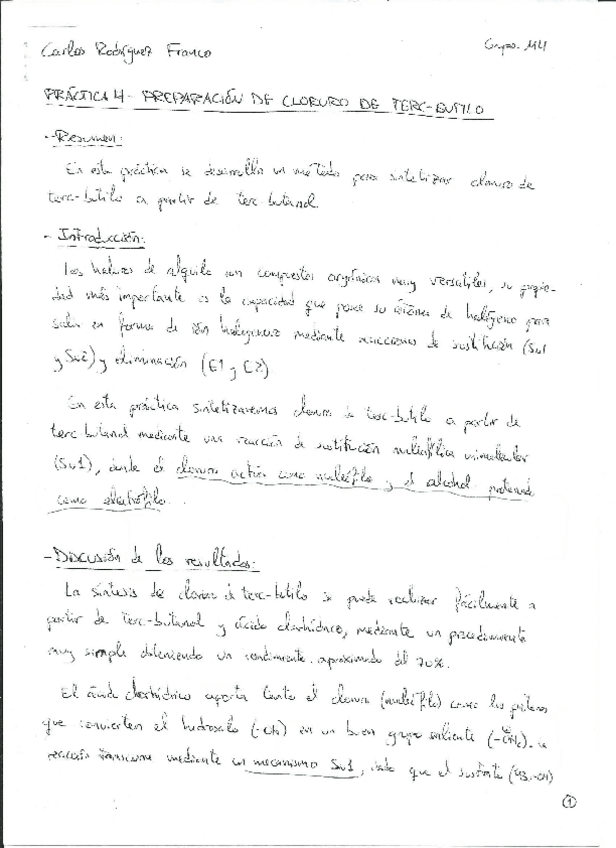 Carlos Rodríguez Franco
Grupo: 144
PRÁCTICA 4 - PREPARACIÓN DE CLORURO DE TERC-BUTILO
- Resumen:
En esta práctica se desarrolla un método para sintetizar cloruro de
terc-butilo a partir de terc-butanol.
- Introducción:
Los haluros de alquilo son compuestos orgánicos muy versatiles, su propie-
dad más importante es la capacidad que posee su átomo de halógeno para
salir en forma de ión halogenuro mediante reacciones de sustitución (SN1
y SN2) y eliminación (E1 y E2)
En esta práctica sintetizaremos cloruro de terc-butilo a partir de
terc-butanol mediante una reacción de sustitución nucleofílica unimolecular
(SN1), donde el cloruro actúa como nucleófilo y el alcohol protonado
como electrófilo.
- Discusión de los resultados:
La síntesis de cloruro de terc-butilo se puede realizar fácilmente a
partir de terc-butanol y ácido clorhídrico, mediante un procedimiento
muy simple obteniendo un rendimiento aproximado del 70%.
El ácido clorhídrico aporta tanto el cloruro (nucleófilo) como los protones
que convierten el hidroxilo (-OH) en un buen grupo saliente (-OH2). La
reacción transcurre mediante un mecanismo SN1, dado que el sustrato
1